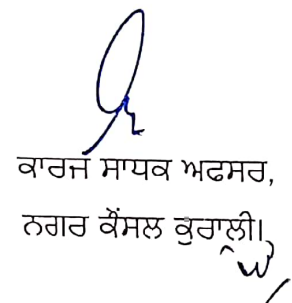 ਕਾਰਜ ਸਾਧਕ ਅਫਸਰ,
ਨਗਰ ਕੌਂਸਲ ਕੁਰਾਲੀ।